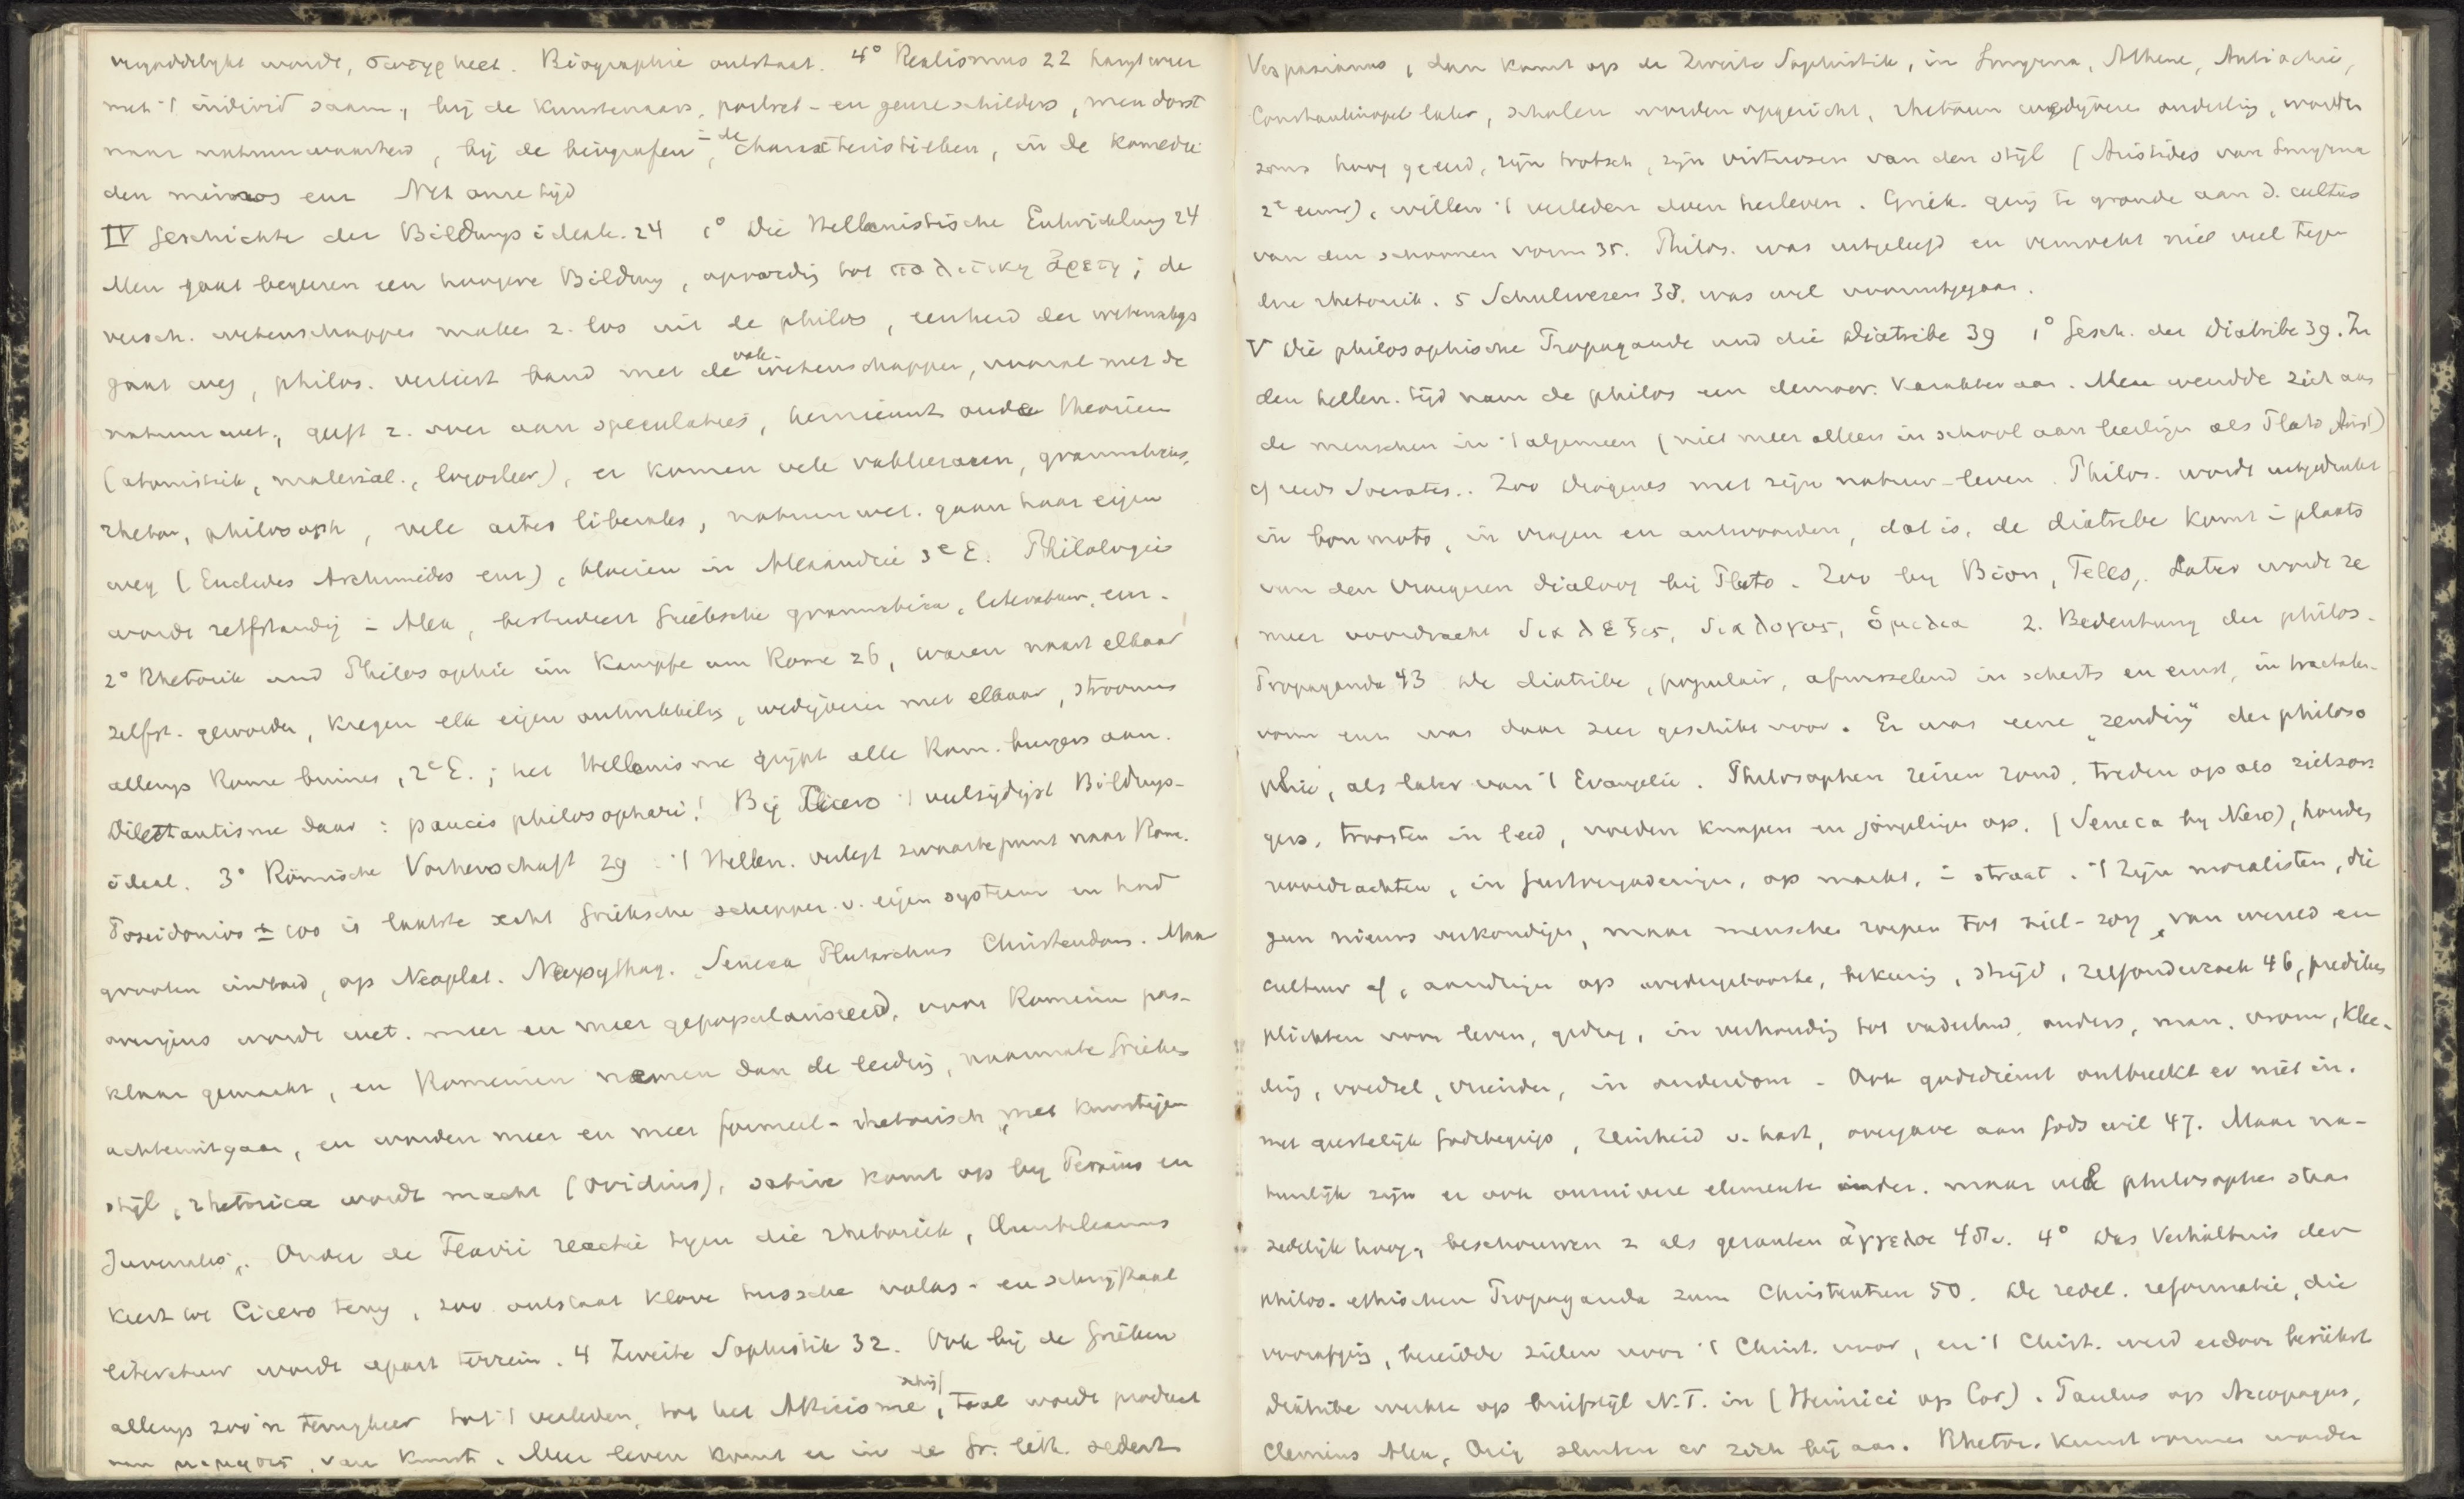 wordt, σωτηρ heet. Biographie ontstaat. 4° Realismus 22 hangt weer
met 't individ saam, bij de kunstenaars, portret- en genreschilders, men dorst
naar natuurwaarheid, bij de biografen, i de charakteristieken, in de komedie
den mimos enz Net onze tijd
IV Geschichte der Bildungsideale. 24 1° Die Hellenistische Entwicklung 24
Men gaat begeeren een hoogere Bildung, opvoeding tot πολιτικη ἀρετη; de
versch. wetenschappen maken z. los uit de philos, eenheid der wetenschap
gaat weg, philos. verliest band met de vak-wetenschappen, vooral met de
natuurwet., geeft z. over aan speculaties, herneemt oude theorieen
(atomistik, material., logosleer), er komen vele vakleeraren, grammaticus,
rhetor, philosoph, vele artes liberales, natuurwet. gaan haar eigen
weg (Euclides Archimedes enz), bloeien in Alexandrie 3e E. Philologie
wordt zelfstandig i Alex, bestudeert Grieksche grammatica, literatuur, enz.
2° Rhetorik und Philosophie im Kampfe um Rome 26, waren naast elkaar
zelfst. geworden, kregen elk eigen ontwikkeling, wedijveren met elkaar, stroomen
allengs Rome binnen, 2e E.; het Hellenisme grijpt alle Rom. burgers aan.
Dilettantisme daar: paucis philosophari! Bij Cicero 't veelzijdigst Bildungs-
ideal. 3° Römische Vorherrschaft 29. 't Hellen. verlegt zwaartepunt naar Rome.
Posidonios ± 100 is laatste echt Grieksche schepper v. eigen systeem en had
grooten invloed, op Neoplat. Neopythag. Seneca Plutarchus Christendom. Maar
overigens wordt wet. meer en meer gepopulariseerd, voor Romeinen pas-
klaar gemaakt, en Romeinen nemen dan de leiding, naarmate Grieken
achteruitgaan, en worden meer en meer formeel-rhetorisch, met kunstigen
stijl, rhetorica wordt macht (Ovidius), satire komt op bij Persius en
Juvenalis. Onder de Flavii reactie tegen die rhetoriek, Quintilianus
keert tot Cicero terug, zoo ontstaat klove tussche volks- en schrijftaal
literatuur wordt apart terrein. 4 Zweite Sophistik 32. Ook bij de Grieken
allengs zoo'n terugkeer tot 't verleden, tot het Atticisme, schrijftaal wordt product
van kunst. Meer leven komt er in de Gr. lett. sedert
Vespasianus, dan komt op de Zweite Sophistik, in Smyrna, Athene, Antiochie,
Constantinopel later, scholen worden opgericht, rhetoren wedijveren onderling, worden
soms hoog geeerd, zijn trotsch, zijn virtuosen van den stijl (Aristides van Smyrna
2e eeuw), willen 't verleden doen herleven. Griek. ging te gronde aan d. cultus
van den schoonen vorm 35. Philos. was uitgeleefd en vermocht niet veel tegen
die rhetoriek. 5 Schulwesen 38. was wel vooruitgegaan.
V Die philosophische Propaganda und die Diatribe 39 1° Gesch. der Diatribe 39. In
den hellen. tijd nam de philos een democr. karakter aan. Men wendde zich aan
de menschen in 't algemeen (niet meer alleen in school aan leerlingen als Plato Arist)
cf reeds Socrates.. Zoo Diogenes met zijn natuur-leven. Philos. wordt uitgedrukt
in bon mots, in vragen en antwoorden, dat is, de diatribe komt i plaats
van den vroegeren dialoog bij Plato. Zoo bij Bion, Teles,. Later wordt ze
meer voordracht διαλεξις, διαλογος, ὁμιλια 2. Bedeutung der philos.
Propaganda 43 De diatribe, populair, afwisselend in scherts en ernst, in tractaten-
vorm enz was daar zeer geschikt voor. Er was eene „zending" der philoso
phie, als later van 't Evangelie. Philosophen reizen rond, treden op als zielzor-
gers, troosten in leed, voeden knapen en jongelingen op, (Seneca bij Nero), houden
voordrachten, in gastvergaderingen, op markt, i straat. 't Zijn moralisten, die
geen nieuws verkondigen, maar menschen roepen tot ziel-zorg, van wereld en
cultuur af, aandringen op wedergeboorte, bekeering, strijd, zelfonderzoek 46, prediken
plichten voor leven, gedrag, in verhouding tot vaderland, ouders, man, vrouw, klee-
ding, voedsel, vrienden, in ouderdom. Ook godsdienst ontbreekt er niet in.
met geestelijk Godsbegrip, reinheid v. hart, overgave aan Gods wil 47. Maar na-
tuurlijk zijn er ook onzuivere elemente onder. maar vele philosophen staan
zedelijk hoog, beschouwen z als gezanten ἀγγελοι 48v. 4° Das Verhältnis der
philos.-ethischen Propaganda zum Christentum 50. De zedel. reformatie, die
voorafging, bereidde zielen voor 't Christ. voor, en 't Christ. werd erdoor
Diatribe werkte op briefstijl N.T. in (Heinrici op Cor). Paulus op Areopagus,
Clemens Alex, Orig sluiten er zich bij aan. Rhetor. kunstvormen worden